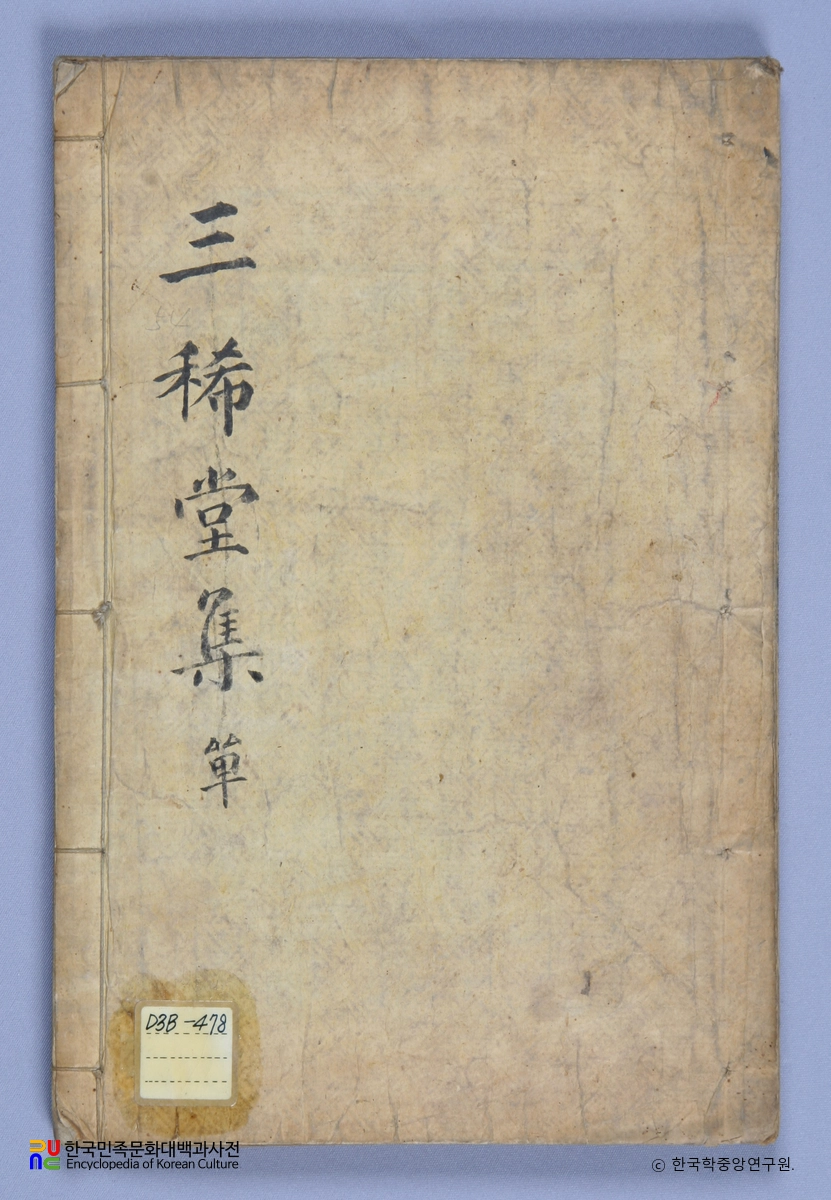 三稀堂集 單
D3B-478
한국민족문화대백과사전
Encyclopedia of Korean Culture
© 한국학중앙연구원.